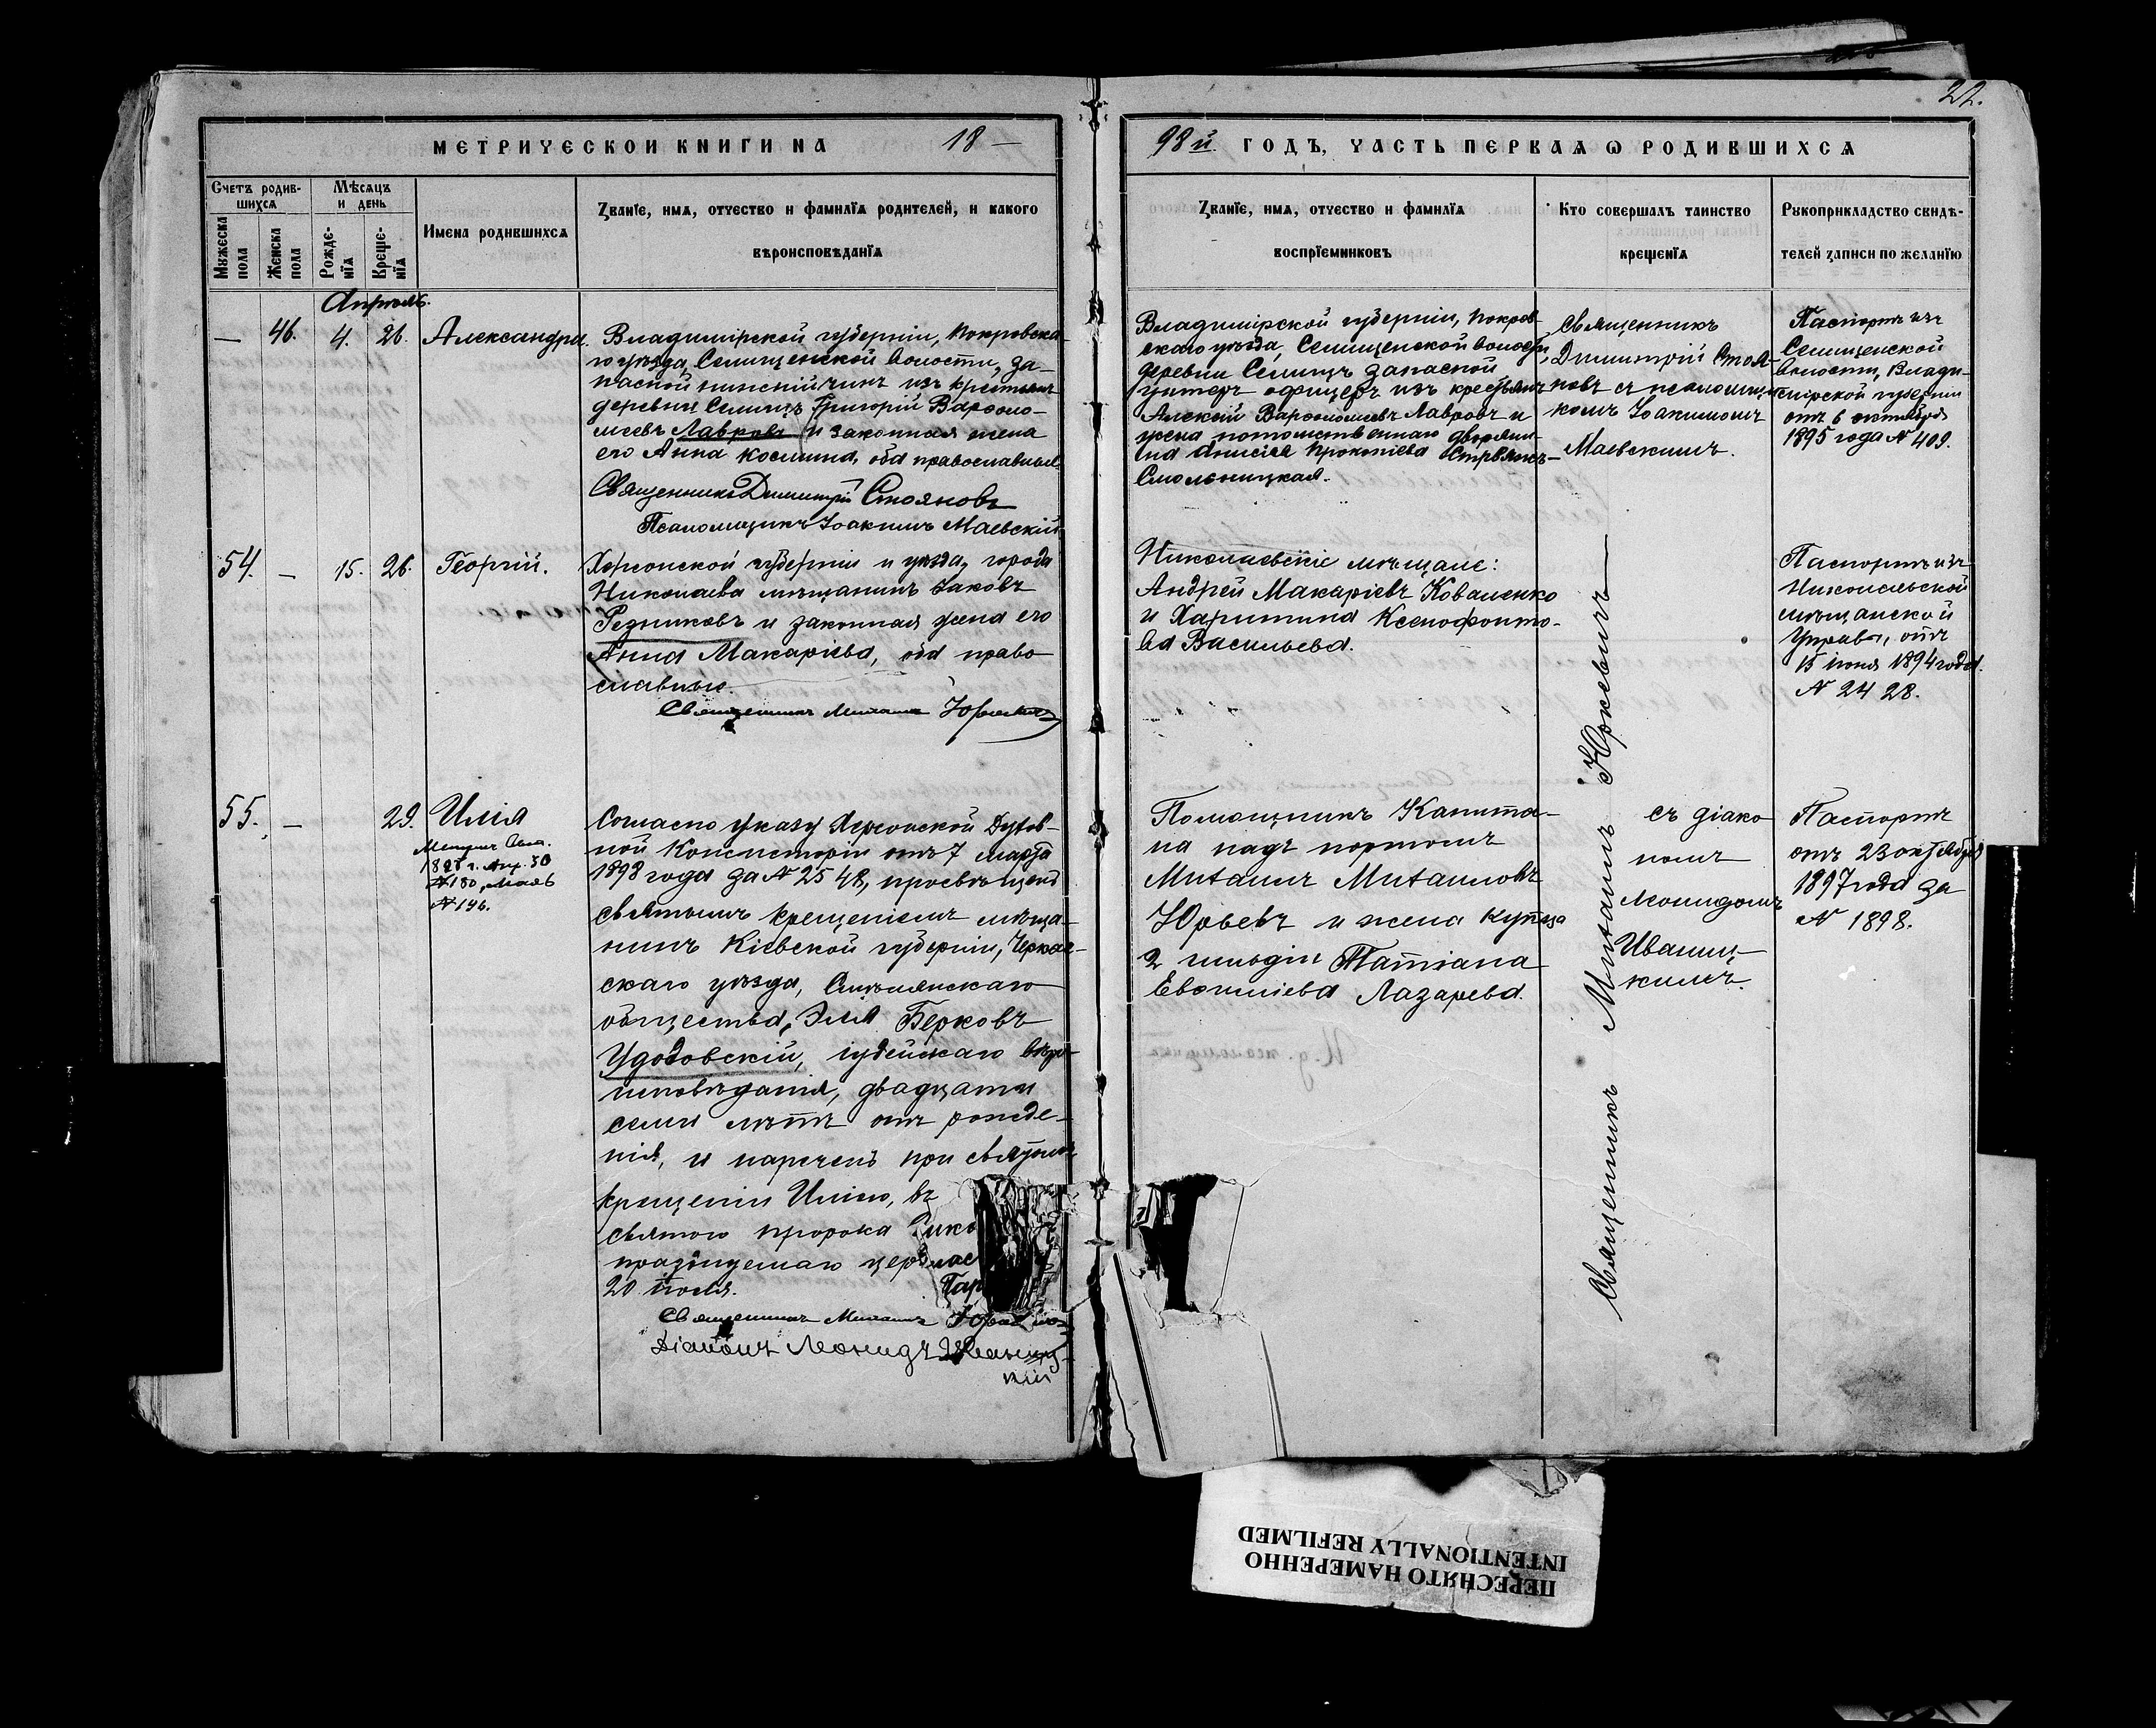 22.
МЕТРИЧЕСКОЙ КНИГИ НА 18 —
98й. ГОДЪ, ЧАСТЬ ПЕРВАЯ Ѡ РОДИВШИХСЯ
Счетъ родив-
шихся
Мѣсяцъ
и день
Мужеска
пола
Женска
пола
Рожде-
нїя
Креще-
нїя
Имена родившихся
Званїе, имя, отчество и фамилїя родителей, и какого
вѣроисповѣданїя
Званїе, имя, отчество и фамилїя
воспрїемниковъ
Кто совершалъ таинство
крещенїя
Рукоприкладство свидѣ-
телей записи по желанїю
Апрѣль.
— 46. 4. 26. Александра.
Владимірской губерніи, Покровска-
го уѣзда, Селищенской волости, за-
пасной нижній чинъ изъ крестьянъ
деревни Селищъ Григорій Варѳоло-
меевъ Лавровъ и законная жена
его Анна Космина, оба православные.
Священникъ Димитрій Стояновъ
Псаломщикъ Іоакимъ Маевскій
Владимірской губерніи, Покров-
скаго уѣзда, Селищенской волости,
деревни Селищъ запасной
унтеръ-офицеръ изъ крестьянъ
Алексій Варѳоломеевъ Лавровъ и
жена потомственнаго дворяни-
на Анисія Прокопіева
Смольницкая.
Священникъ
Димитрій Стоя-
новъ съ псаломщи-
комъ Іоакимомъ
Маевскимъ.
Паспортъ изъ
Селищенской
волости, Влади-
мірской губерніи
отъ 6 октября
1895 года № 409.
54. — 15. 26. Георгій.
Херсонской губерніи и уѣзда, города
Николаева мѣщанинъ Іаковъ
Резниковъ и законная жена его
Анна Макаріева, оба право-
славные.
Священникъ Михаилъ Юркевичъ
Николаевскіе мѣщане:
Андрей Макаріевъ Коваленко
и Харитина Ксенофонто-
ва Васильева.
Паспортъ изъ
Николаевской
мѣщанской
Управы, отъ
15 іюня 1894 года.
№ 2428.
55. — 29. Илія
1898 г. Апр. 30
№ 180, Мая 6
№ 196.
Согласно указу Херсонской Духов-
ной Консисторіи отъ 7 марта
1898 года за № 2548, просвѣщенъ
святымъ крещеніемъ мѣща-
нинъ Кіевской губерніи, Черкас-
скаго уѣзда, Смѣлянскаго
общества, Элія Берковъ
Удодовскій, іудейскаго вѣро-
исповѣданія, двадцати
семи лѣтъ отъ рожде-
нія, и нареченъ при святомъ
крещеніи Иліею, въ
святого пророка
празднуемаго
20 іюля.
Священникъ Михаилъ Юркевичъ
Діаконъ Леонидъ Иваниц-
кій
Помощникъ Капита-
на надъ портомъ
Михаилъ Михаиловъ
Юрьевъ и жена купца
2 гильдіи Татіана
Евѳиміева Лазарева.
Священникъ Михаилъ Юркевичъ
съ діако-
номъ
Леонидомъ
Иваниц-
кимъ.
Паспортъ
отъ 23 октября
1897 года за
№ 1898.
ПЕРЕСНЯТО НАМЕРЕННО
INTENTIONALLY REFILMED